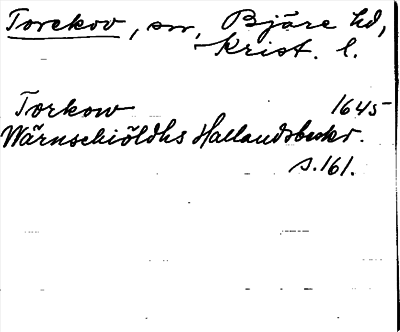 Torekov, sn, Bjäre hd,
Krist. l.
Torkow 1645
Wärnschiöldhs Hallandsbeskr.
s. 161.